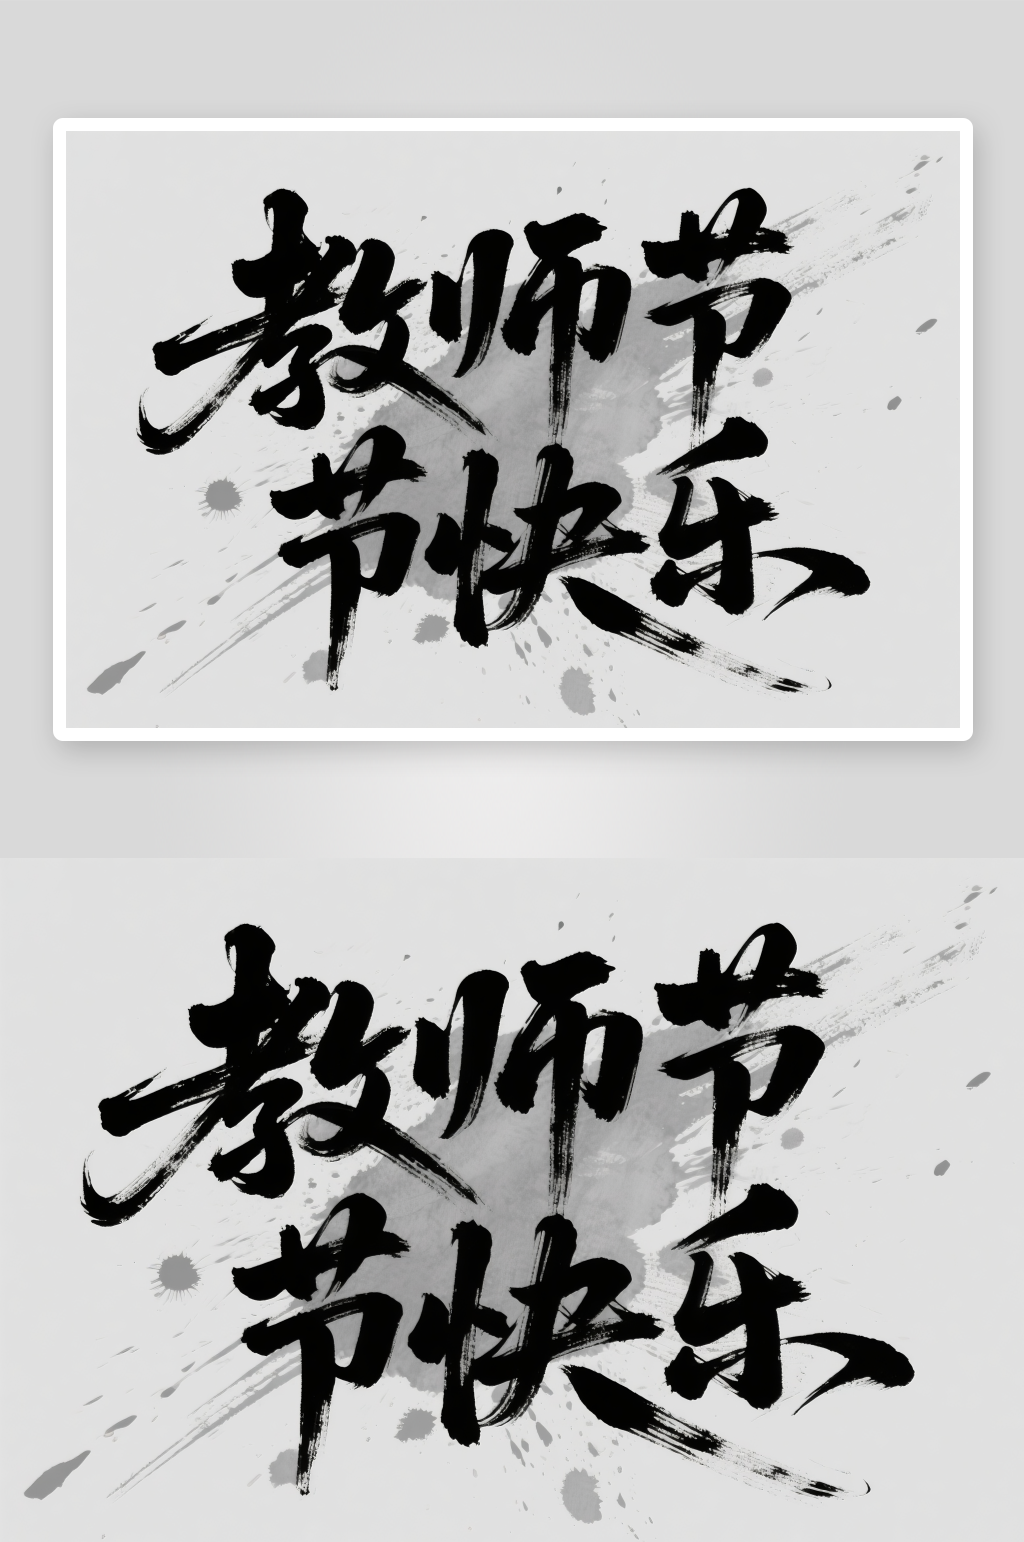 教师节
节快乐
教师节
节快乐